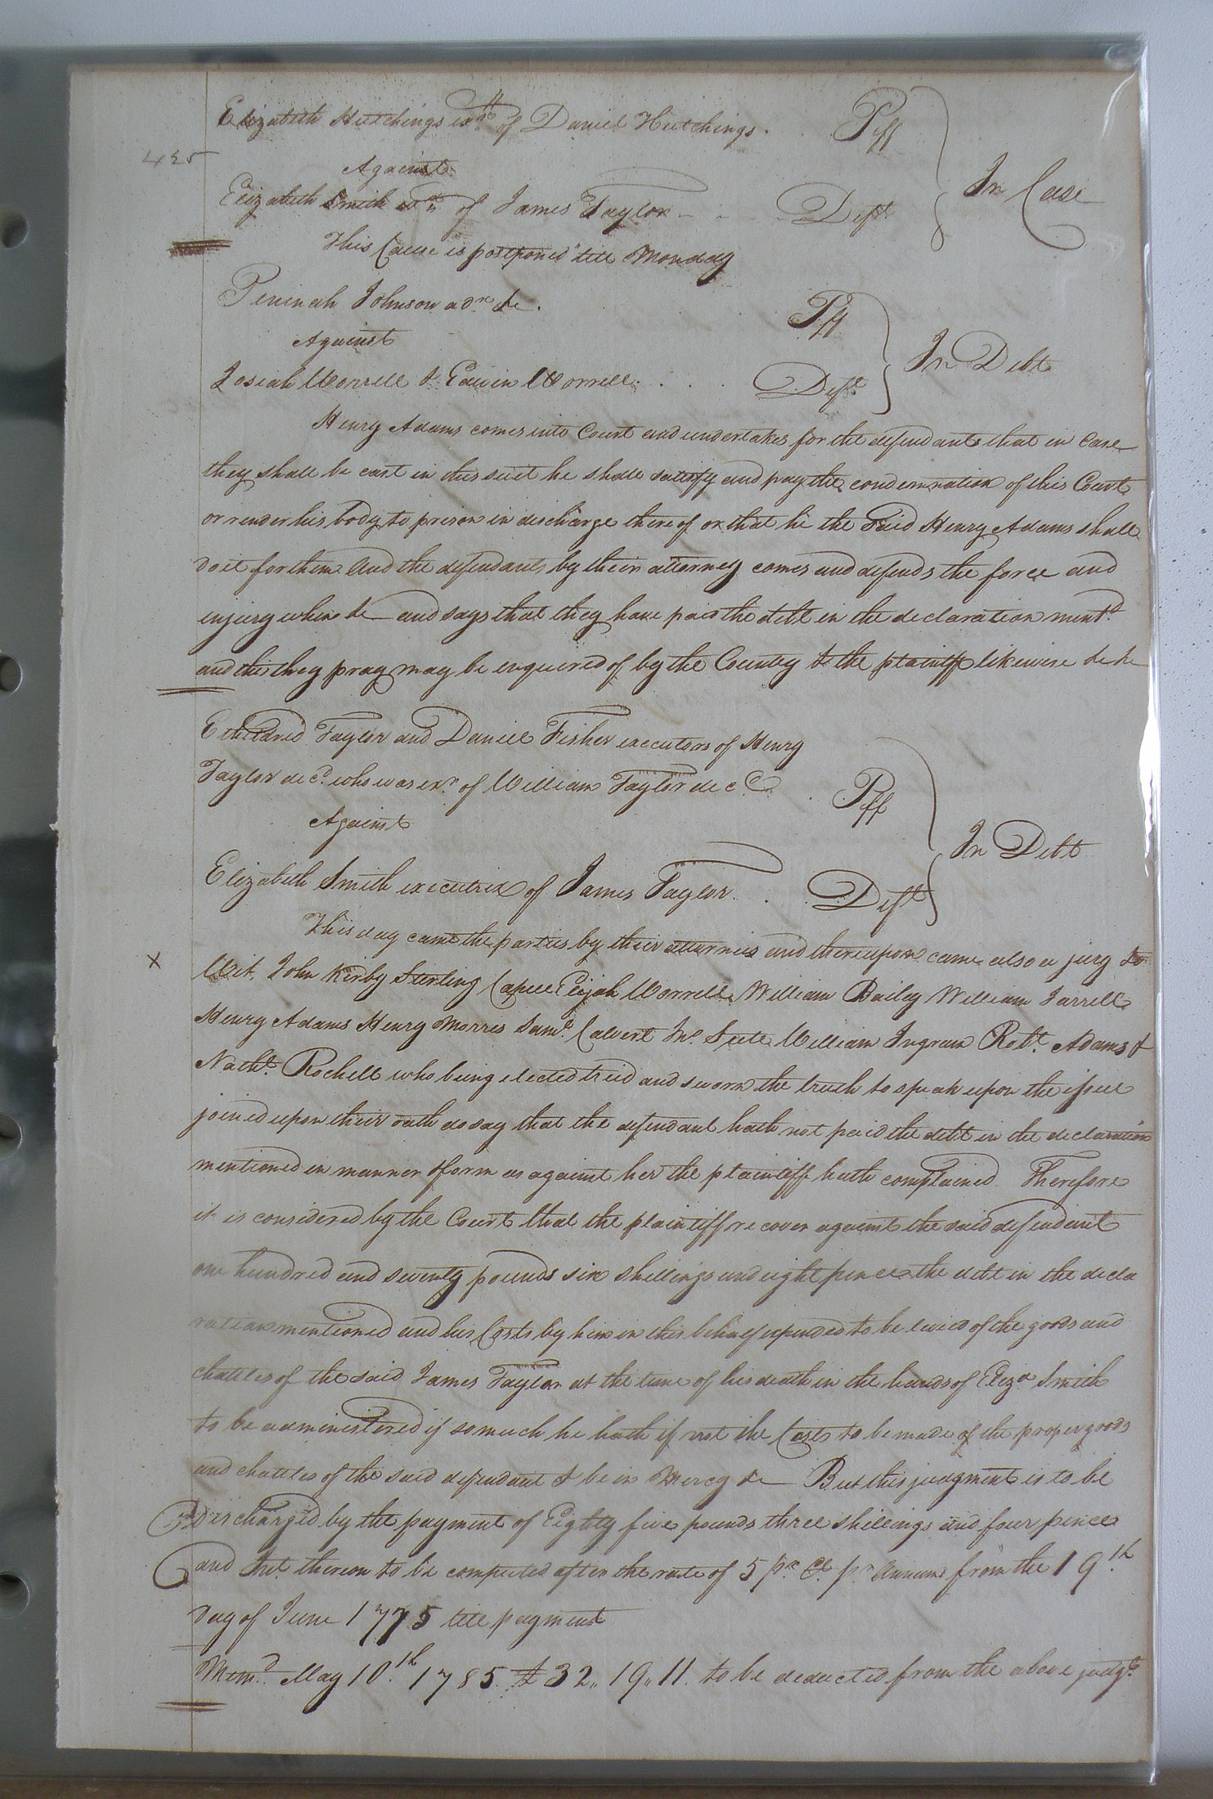 Elizabeth Hutchings exx of Daniel Hutchings. Plff
425
Against In Case
Elizabeth Smith exx of James Taylor Deft
This Cause is postponed till Monday
Peninah Johnson adx &c. Plff
Against In Debt
Josiah Worrell & Edwin Worrell. Deft
Henry Adams comes into Court and undertakes for the defendants that in Case
they shall be cast in this suit he shall satisfy and pay the condemnation of this Court
or render his body to prison in discharge thereof or that he the said Henry Adams shall
do it for them And the defendants by their attorney comes and defends the force and
injury when &c and says that they have paid the debt in the declaration mentd
and this they pray may be enquired of by the Country & the plaintiff likewise &c
Etheldred Taylor and Daniel Fisher executors of Henry
Taylor decd. who was exr of William Taylor decd Plff
Against In Debt
Elizabeth Smith executrix of James Taylor. Deft
This day came the parties by their attornies and thereupon came also a jury to
x Wit. John Kirby Sterling Capell Elijah Worrell William Bailey William Jarrell
Henry Adams Henry Morris Saml. Calvert Jno. William Ingram Robt. Adams &
Nathl. Rochell who being elected tried and sworn the truth to speak upon the issue
joined upon their oath do say that the defendant hath not paid the debt in the declaration
mentioned in manner & form as against her the plaintiff hath complained Therefore
it is considered by the Court that the plaintiff recover against the said defendant
one hundred and seventy pounds six shillings and eight pence the debt in the decla
ration mentioned and his Costs by him in this behalf expended to be levied of the goods and
chattles of the said James Taylor at the time of his death in the hands of Eliza Smith
to be administered if so much he hath if not the Costs to be made of the proper goods
and chattles of the said defendant & be in Mercy &c But this judgment is to be
Discharged by the payment of Eighty five pounds three shillings and four pence
and Int. thereon to be computed after the rate of 5 pr. Ct. pr Annum from the 19th
day of June 1775 till payment
Memd. May 10th 1785 £32,,19,,11. to be deducted from the above judgt